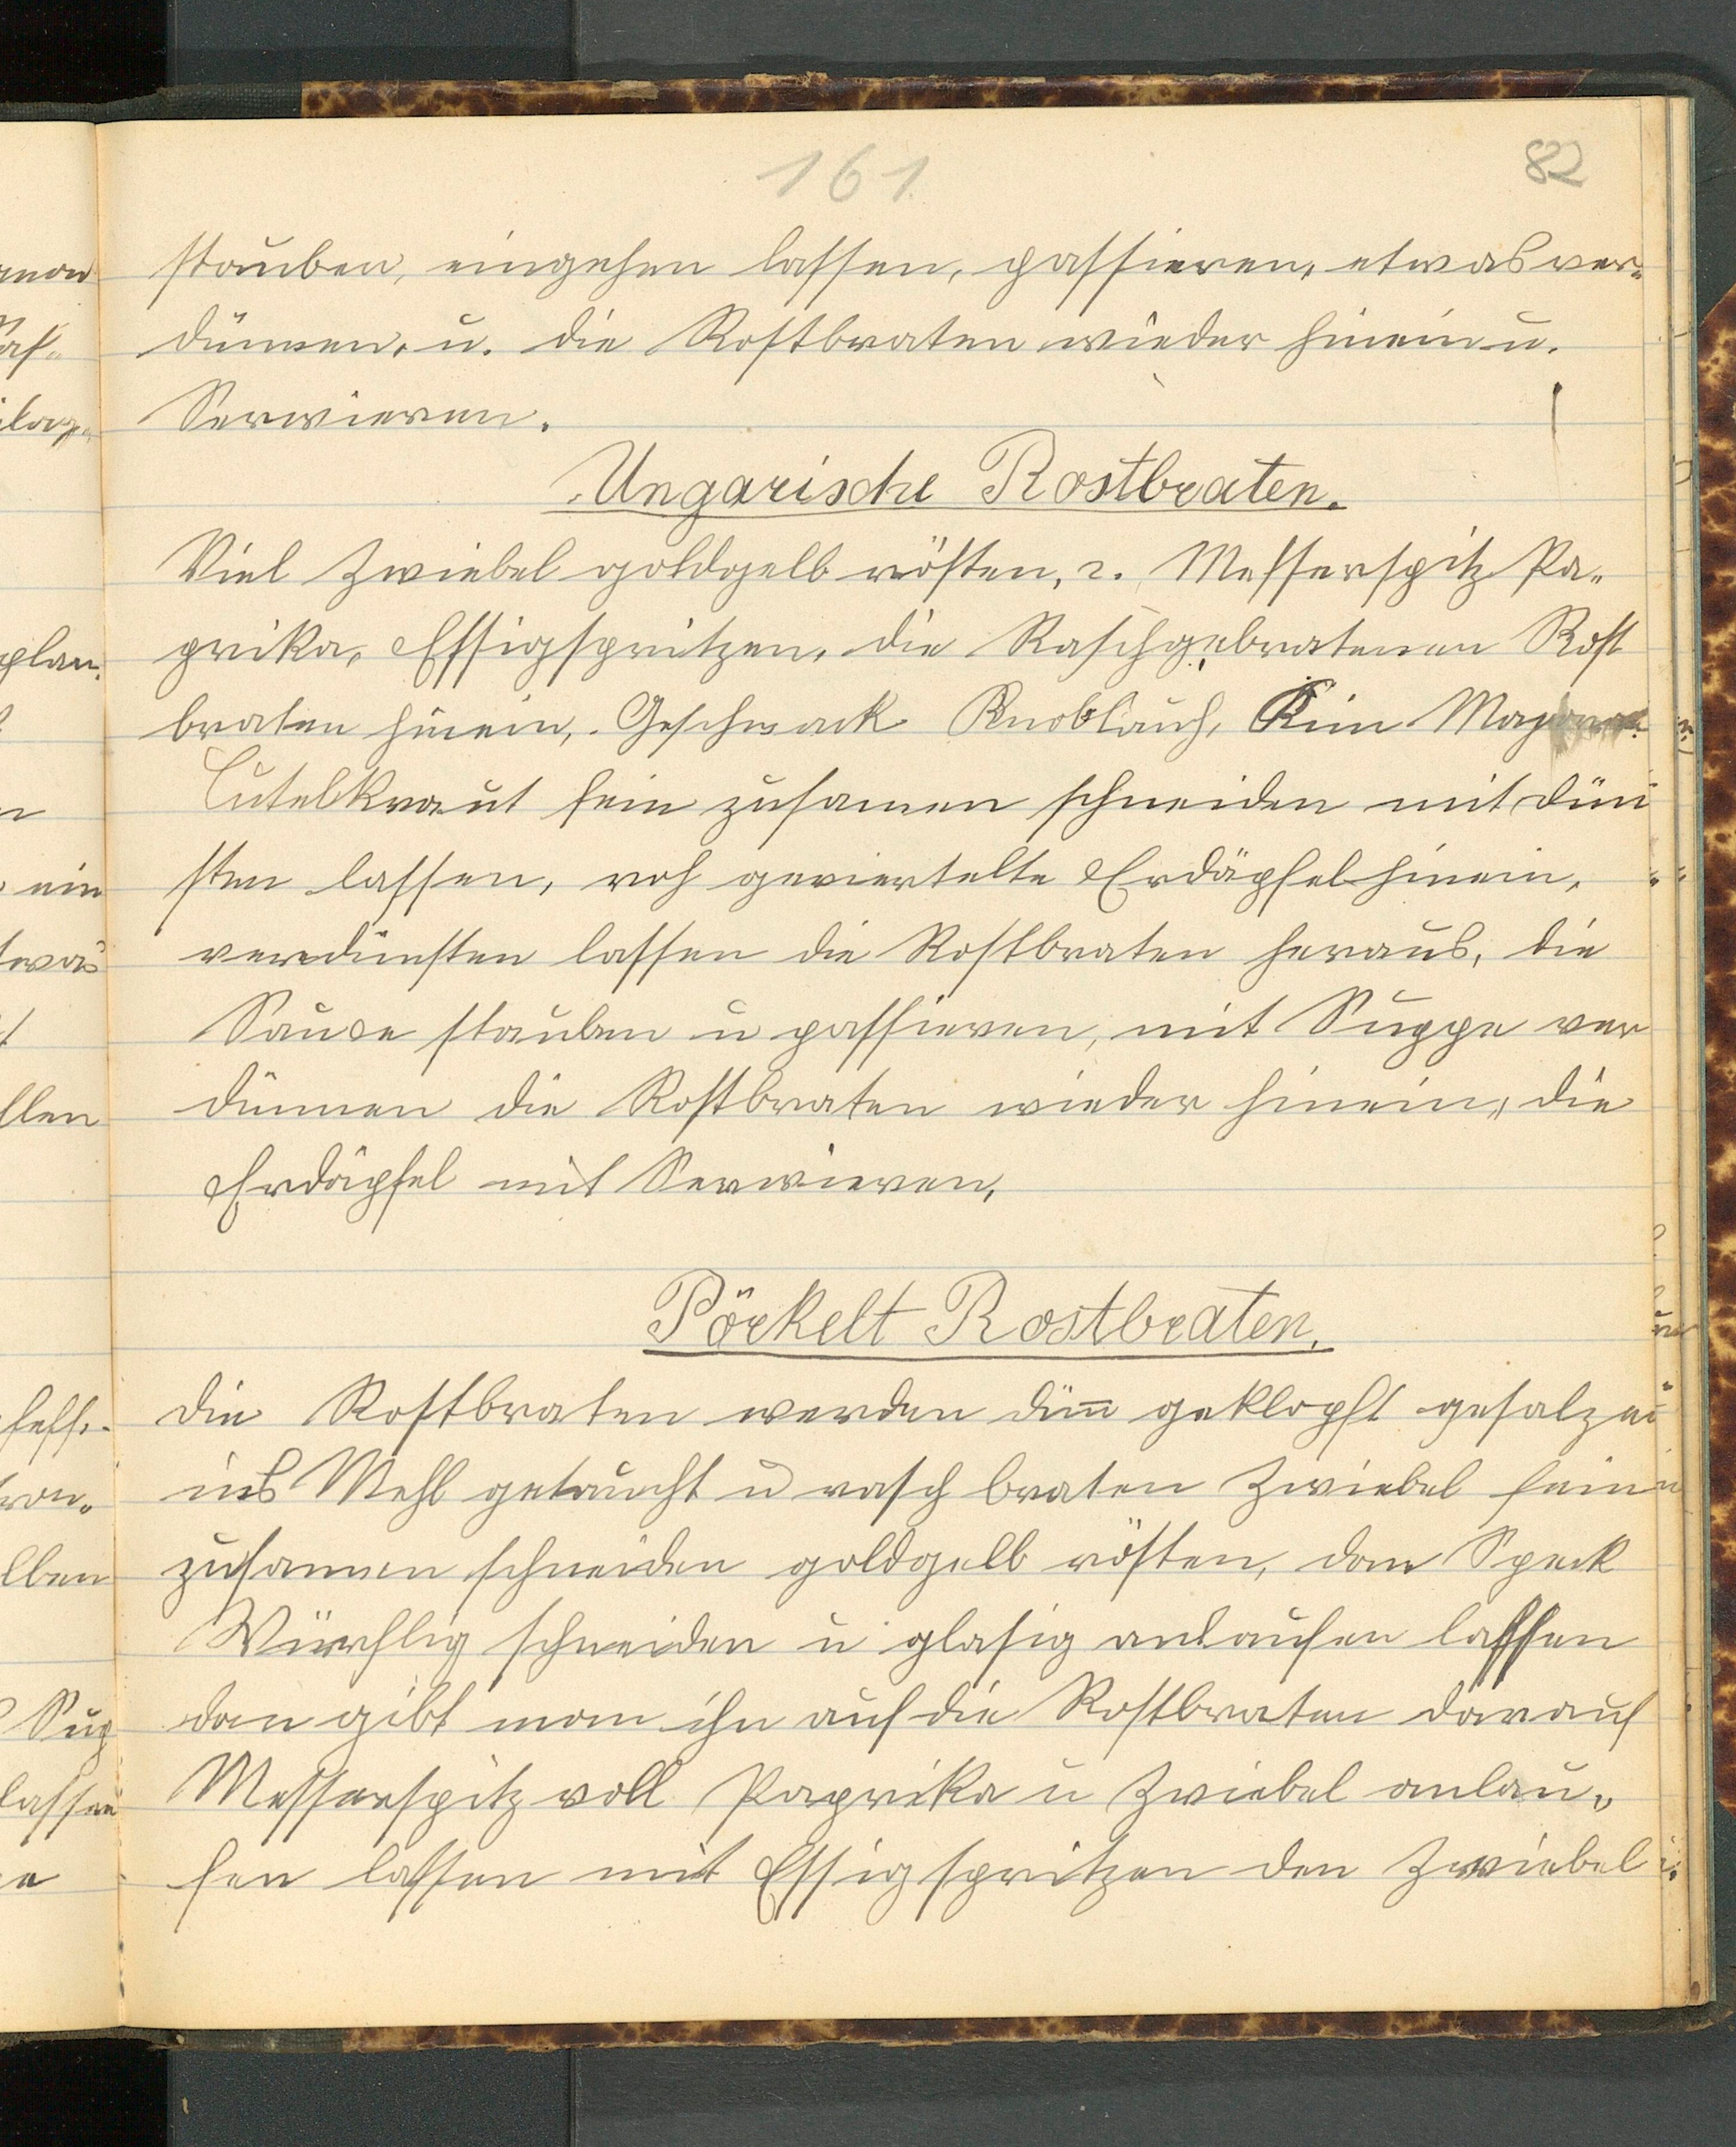 161.
82
stauben, eingehen lassen, passieren, etwas ver-
dünnen, u. die Rostbraten wieder hinein u.
Servieren.
Ungarische Rostbraten.
Viel Zwiebel goldgelb rösten, 2. Messerspitz Pa-
prika, Essigspritzen, die Raschgebratenen Rost
braten hinein, Geschmack Knoblauch, Kim Majoran
Cutelkraut fein zusamen schneiden mit dün
sten lassen, roh geviertelte Erdäpfel hinein,
verdünsten lassen die Rostbraten heraus, die
Sauce stauben u passieren, mit Suppe ver
dünnen die Rostbraten wieder hinein, die
Erdäpfel mit Servieren,
Pörkelt Rostbraten.
die Rostbraten werden dün̄ geklopft gesalzen
ins Mehl getaucht u rasch braten Zwiebel fein
zusamen schneiden goldgelb rösten, dan Speck
Würflig schneiden u glasig anlaufen lassen
dan gibt man ihn auf die Rostbraten darauf
Messerspitz voll Paprika u Zwiebel anlau-
fen lassen mit Essig spritzen den Zwiebel